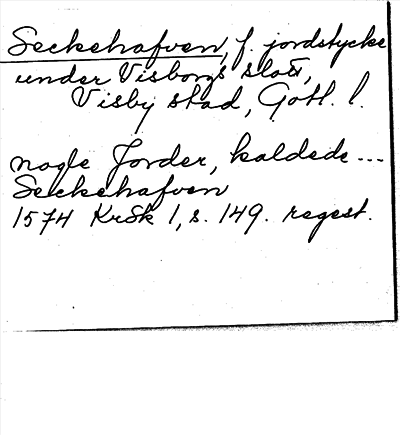 Seckehafven, f. jordstycke
under Visborgs slott,
Visby stad, Gotl. l.
nogle Jorder, kaldede ...
Seckehafven
1574 KrSk 1, s. 149. regest.